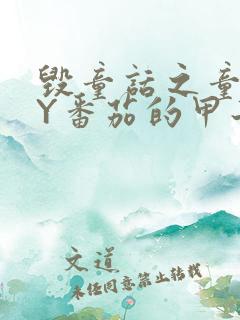 毁童话之童
Y番茄的甲
文道
未经同意禁止转载